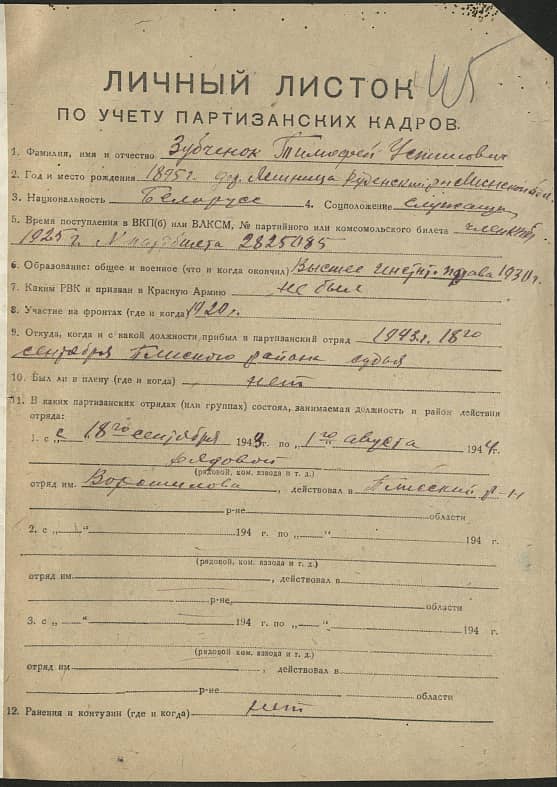 45
ЛИЧНЫЙ ЛИСТОК
ПО УЧЕТУ ПАРТИЗАНСКИХ КАДРОВ.
1. Фамилия, имя и отчество Зубченок Тимофей Устинович
2. Год и место рождения 1895 г. дер. Лешница Руденский р-н Минской обл.
3. Национальность Беларусс 4. Соцположение служащ
5. Время поступления в ВКП(б) или ВЛКСМ, № партийного или комсомольского билета член КП(б)
1925 г. № партбилета 2825085
6. Образование: общее и военное (что и когда окончил) Высшее Инстит. права 1930 г.
7. Каким РВК и призван в Красную Армию не был
8. Участие на фронтах (где и когда) 1920 г.
9. Откуда, когда и с какой должности прибыл в партизанский отряд 1943 г. 18го
сентября Плисского района судья
10. Был ли в плену (где и когда) нет
11. В каких партизанских отрядах (или группах) состоял, занимаемая должность и район действия
отряда:
1. с „18го сентября 1943 г. по „1го августа 1944 г.
рядовой
(рядовой, ком. взвода и т. д.)
отряд им. Ворошилова, действовал в Плисский р-н
р-не области
2. с „ “ 194 г. по „ “ 194 г.
(рядовой, ком. взвода и т. д.)
отряд им , действовал в
р-не, области
3. с „ “ 194 г. по „ “ 194 г.
(рядовой, ком. взвода и т. д.)
отряд им , действовал в
р-не области
12. Ранения и контузии (где и когда) нет